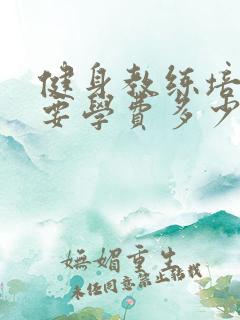 健身教练培
要學費多少
嫵媚重生
未经同意禁止转载